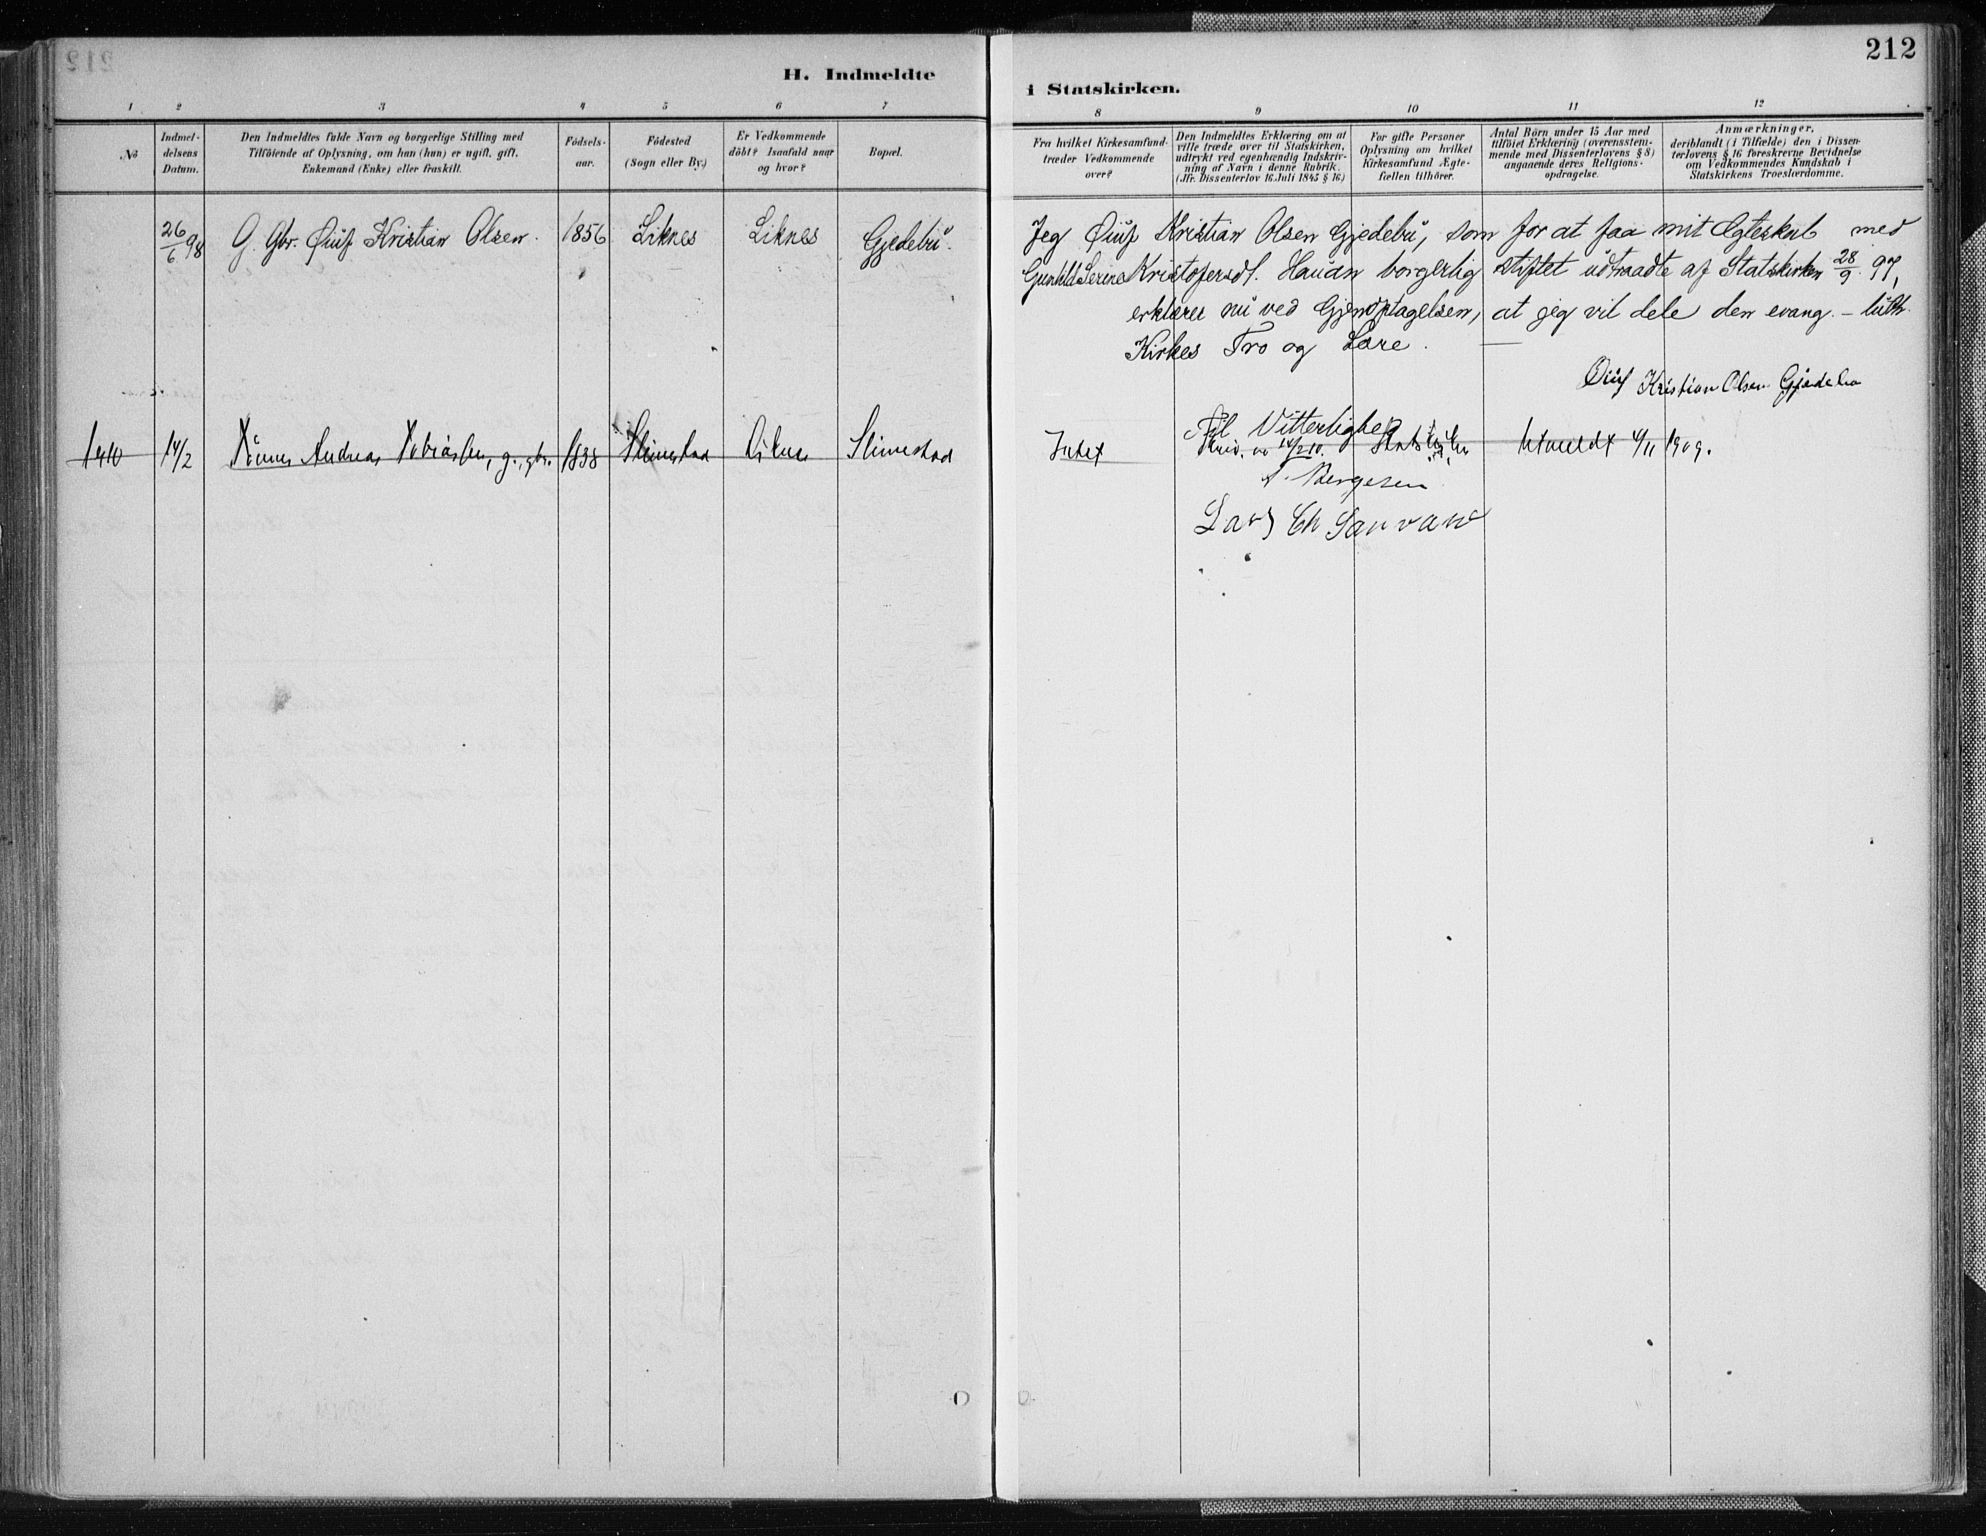 212
H. Indmeldte
i Statskirken.
1 2 3 4 5 6 7
8 9 10 11 12
No
Indmel-
delsens
Datum.
Den Indmeldtes fulde Navn og borgerlige Stilling med
Tilföiende af Oplysning, om han (hun) er ugift, gift,
Enkemand (Enke) eller fraskilt.
Födsels-
aar.
Födested
(Sogn eller By.)
Er Vedkommende
döbt? Isaafald naar
og hvor?
Bopæl.
Fra hvilket Kirkesamfund
træder Vedkommende
over?
Den Indmeldtes Erklæring om at
ville træde over til Statskirken,
udtrykt ved egenhændig Indskriv-
ning af Navn i denne Rubrik.
(Jfr. Dissenterlov 16 Juli 1845 § 16)
For gifte Personer
Oplysning om hvilket
Kirkesamfund Ægte-
fællen tilhörer.
Antal Börn under 15 Aar med
tilföiet Erklæring (overensstem-
mende med Dissenterlovens § 8)
angaaende deres Religions-
opdragelse.
Anmærkninger,
deriblandt (i Tilfælde) den i Dissen-
terlovens § 16 foreskrevne Bevidnelse
om Vedkommendes Kundskab i
Statskirkens Troeslærdomme.
26/6 98 G. Gbr. Øiuf Kristian Olsen. 1856 Liknes Liknes Gjedebu.
Jeg Øiuf Kristian Olsen Gjedebu, som for at faa mit Ægteskab med
Gunhild Serine Kristofersdt. Haudn borgerlig stiftet udtraadte af Statskirken 28/9 97,
erklærer nu ved Gjenoptagelsen, at jeg vil dele den evang.-luth.
Kirkes Tro og Lære.
Øiuf Kristian Olsen Gjedebo
1910 14/2 Andreas Tobiassen, g., gbr. 1838 Slimestad Slimestad
Intet
Til Vitterlighed
14/2 10. Statskirken Utmeldt 4/11 1909.
Bergesen
Lars Ch